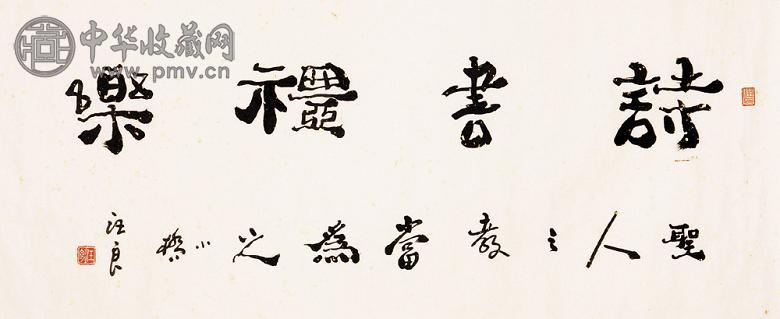 中华收藏网
www.pmv.cn
詩書禮樂
聖人之教當為之
小
汪良